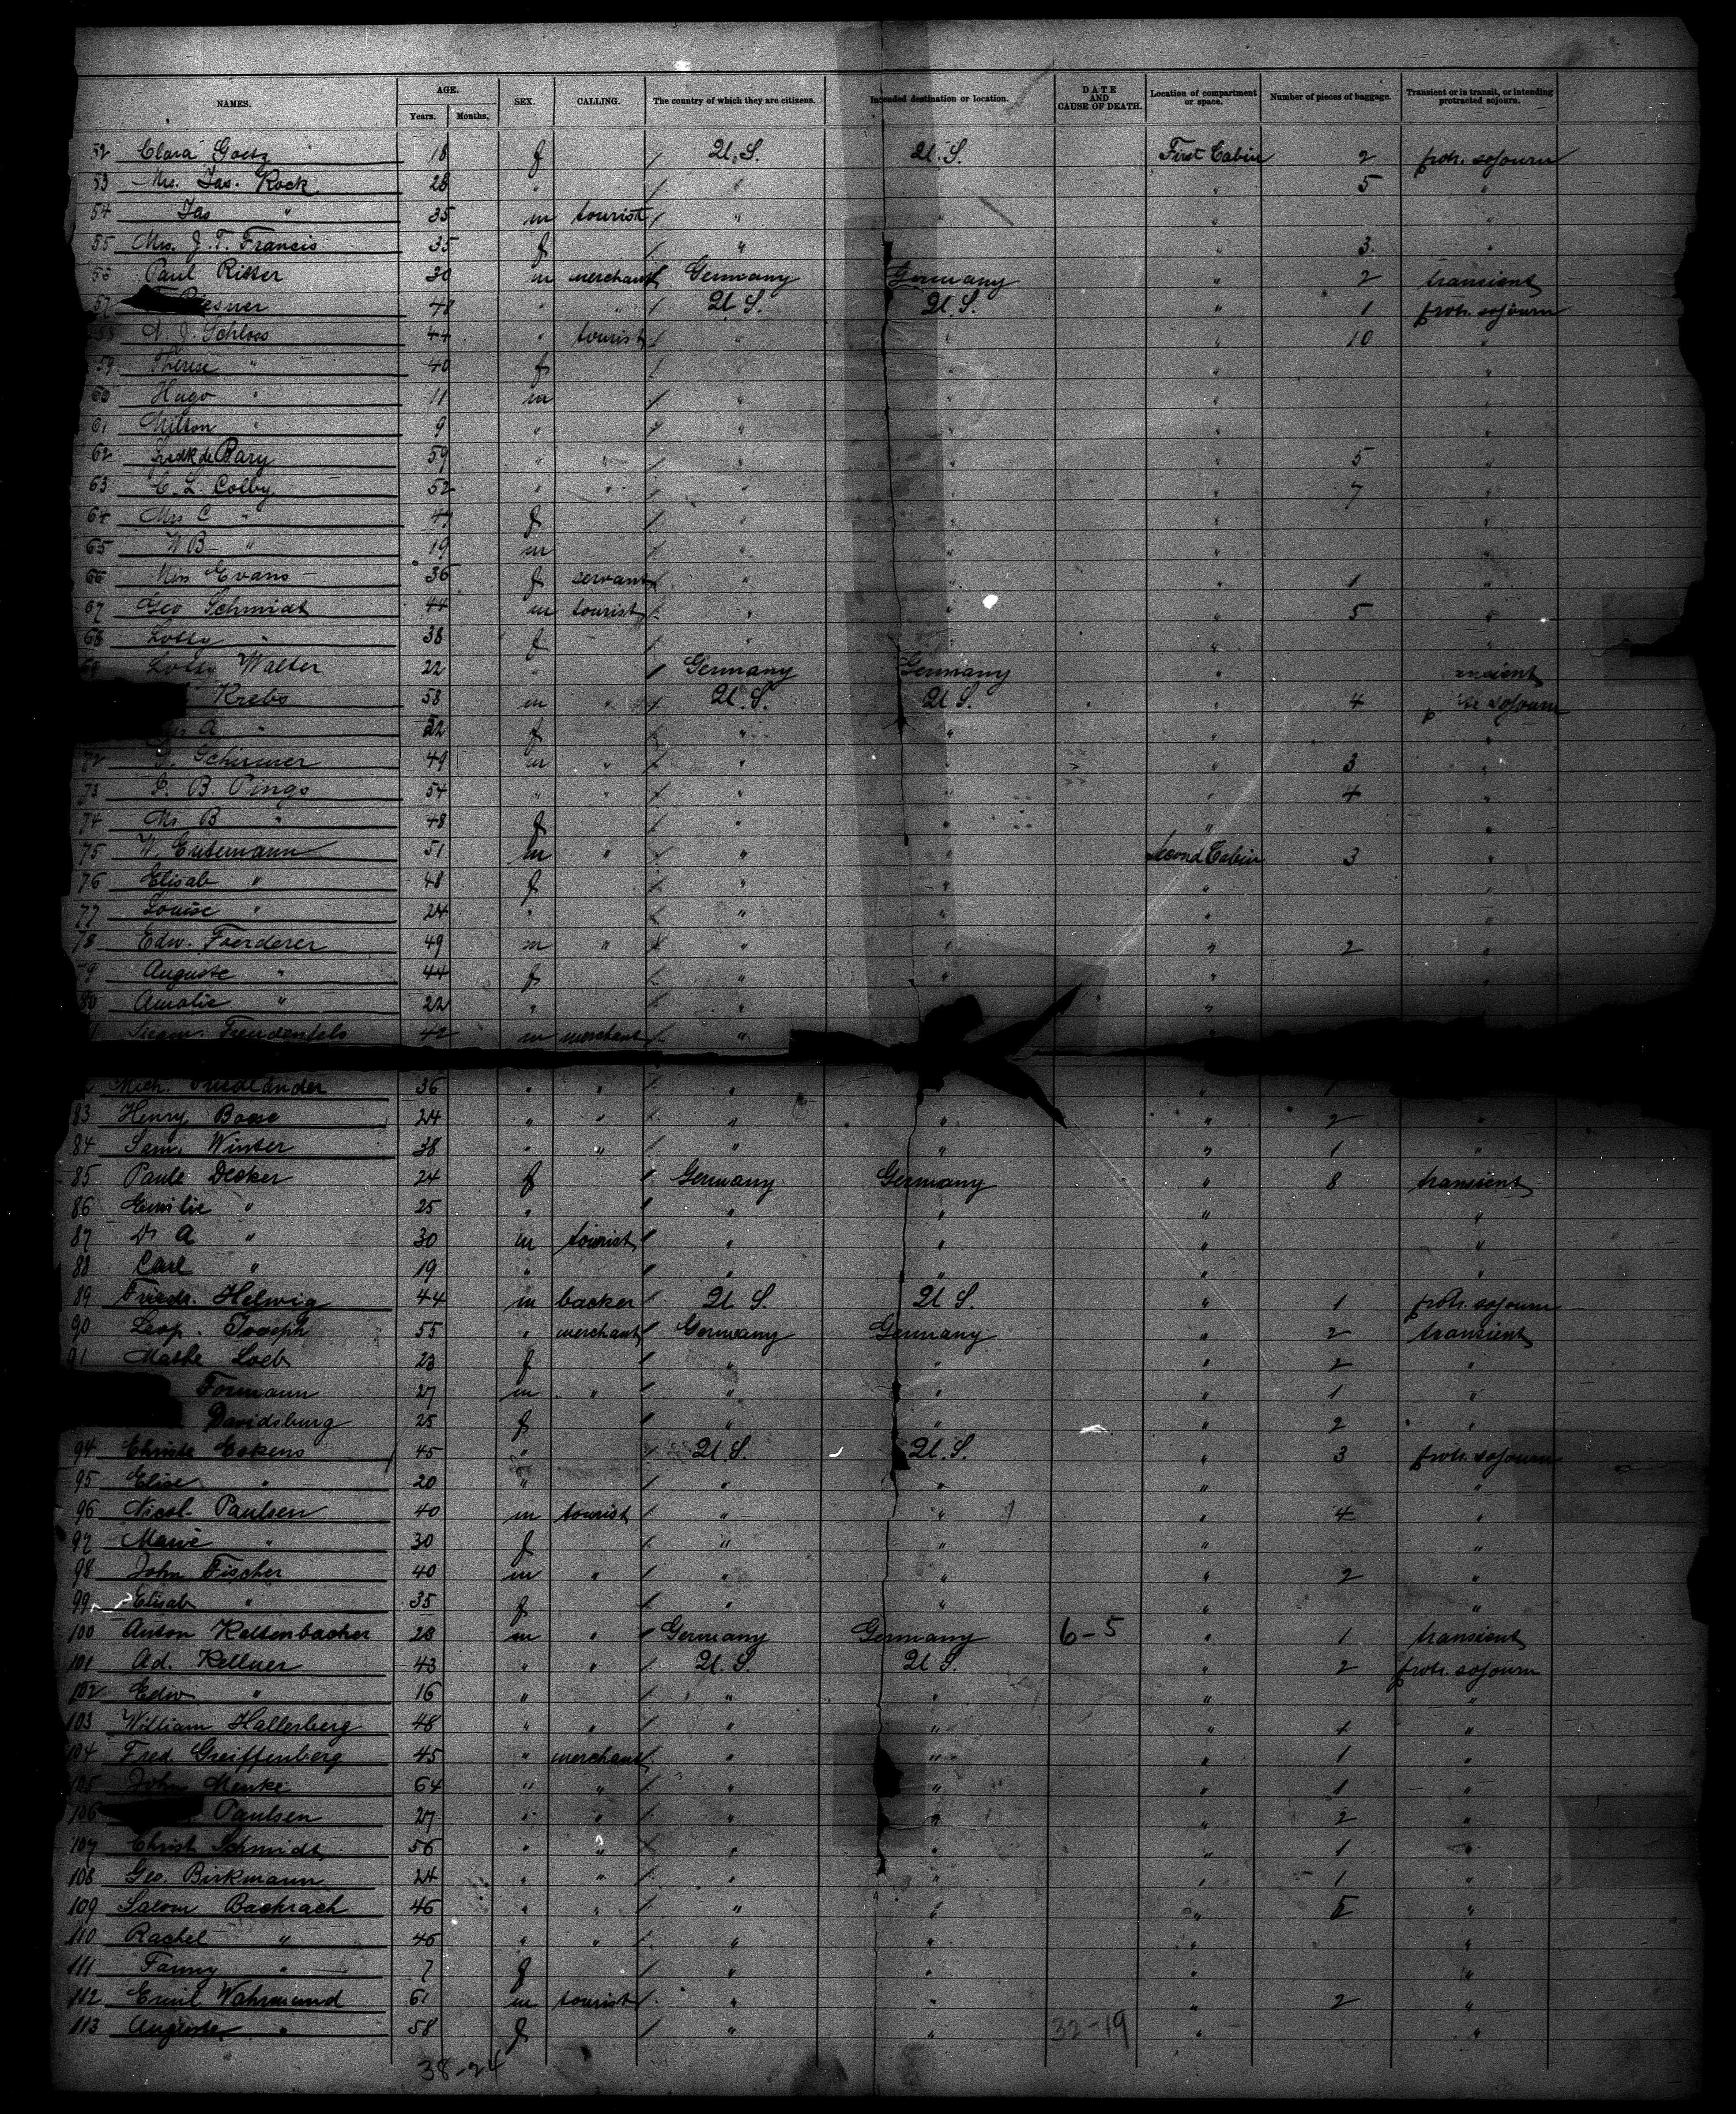 NAMES. AGE. Years. Months. SEX. CALLING. The country of which they are citizens. Intended destination or location. DATE AND CAUSE OF DEATH. Location of compartment or space. Number of pieces of baggage. Transient or in transit, or intending protracted sojourn.
52 Clara Goetz 18 f / U.S. U.S. First Cabin 2 protr. sojourn
53 Mrs. Jas. Rock 28 " / " " " 5 "
54 Jas " 35 m tourist / " " " "
55 Mrs. J. T. Francis 35 f / " " " 3 "
56 Paul Ritter 30 m merchant / Germany Germany " 2 transient
57 48 " " / U.S. U.S. " 1 protr. sojourn
58 Schloss 44 " tourist / " " " 10 "
59 Therese " 40 f / " " " "
60 Hugo " 11 m / " " " "
61 Milton " 9 " / " " " "
62 Fredk de Bary 59 " " / " " " 5 "
63 C. L. Colby 52 " " / " " " 7 "
64 Mrs C " 47 f / " " " "
65 W B " 19 m / " " " "
66 Miss Evans 36 f servant / " " " 1 "
67 Geo Schmidt 44 m tourist / " " " 5 "
68 Lotty " 38 f / " " " "
69 Lotty Walter 22 " / Germany Germany " ansient
Krebs 58 m " / U.S. U.S. " 4 p sojourn
A " 32 f / " " " "
72 Schirmer 49 m " / " " " 3 "
73 B. Pings 54 " " / " " " 4 "
74 Mrs B " 48 f / " " " "
75 W. Entemann 51 m " / " " Second Cabin 3 "
76 Elisab " 48 f / " " " "
77 Louise " 24 " / " " " "
78 Edw. Foerderer 49 m " / " " " 2 "
79 Auguste " 44 f / " " " "
80 Amalie " 22 " / " " " "
Freudenfels 42 m merchant / " "
Mich. Friedländer 36 " " / " " "
83 Henry Boese 24 " " / " " " 2 "
84 Sam. Winter 38 " " / " " " 1 "
85 Paule Decker 24 f / Germany Germany " 8 transient
86 Emilie " 25 " / " " " "
87 Dr A " 30 m tourist / " " " "
88 Carl " 19 " / " " " "
89 Friedr. Helwig 44 m backer / U.S. U.S. " 1 protr. sojourn
90 Leop. Joseph 55 " merchant / Germany Germany " 2 transient
91 Mathe Loeb 23 f / " " " 2 "
Formann 27 m " / " " " 1 "
Davidsburg 25 f / " " " 2 "
94 Christe Eskens 45 " / U.S. U.S. " 3 protr. sojourn
95 Elise " 20 " / " " " "
96 Nicol. Paulsen 40 m tourist / " " " 4 "
97 Marie " 30 f / " " " "
98 John Fischer 40 m " / " " " 2 "
99 Elisab " 35 f / " " " "
100 Anton Kaltenbacher 28 m " / Germany Germany 6-5 " 1 transient
101 Ad. Kellner 43 " " / U.S. U.S. " 2 protr. sojourn
102 Edw " 16 " / " " " "
103 William Hallerberg 48 " " / " " " 1 "
104 Fred Greiffenberg 45 " merchant / " " " 1 "
105 John Menke 64 " " / " " " 1 "
106 Paulsen 27 " " / " " " 2 "
107 Christ Schmidt 56 " " / " " " 1 "
108 Geo. Birkmann 24 " " / " " " 1 "
109 Salom Bachrach 46 " " / " " " 5 "
110 Rachel " 46 " " / " " " "
111 Fanny " 7 f / " " " "
112 Emil Wahrmund 61 m tourist / " " " 2 "
113 Auguste " 58 f / " " 32-19 " "
38-24